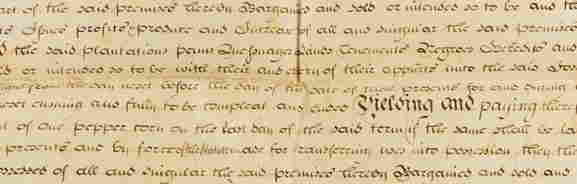 of the said premises hereby Bargained and sold or intended so to be and the
profits produce and of all and singular the said premises
the said plantations penns Messuages Lands Tenements Negroes and
or intended so to be with their and every of their appurts unto the said
from the day next before the day of the date of these presents for and during
next ensuing and fully to be compleat and ended Yielding and paying there
of one pepper corn on the last day of the said term if the same shall be
presents and by force of the Statute made for transferring uses into possession they the
of all and singular the said premises hereby Bargained and sold and